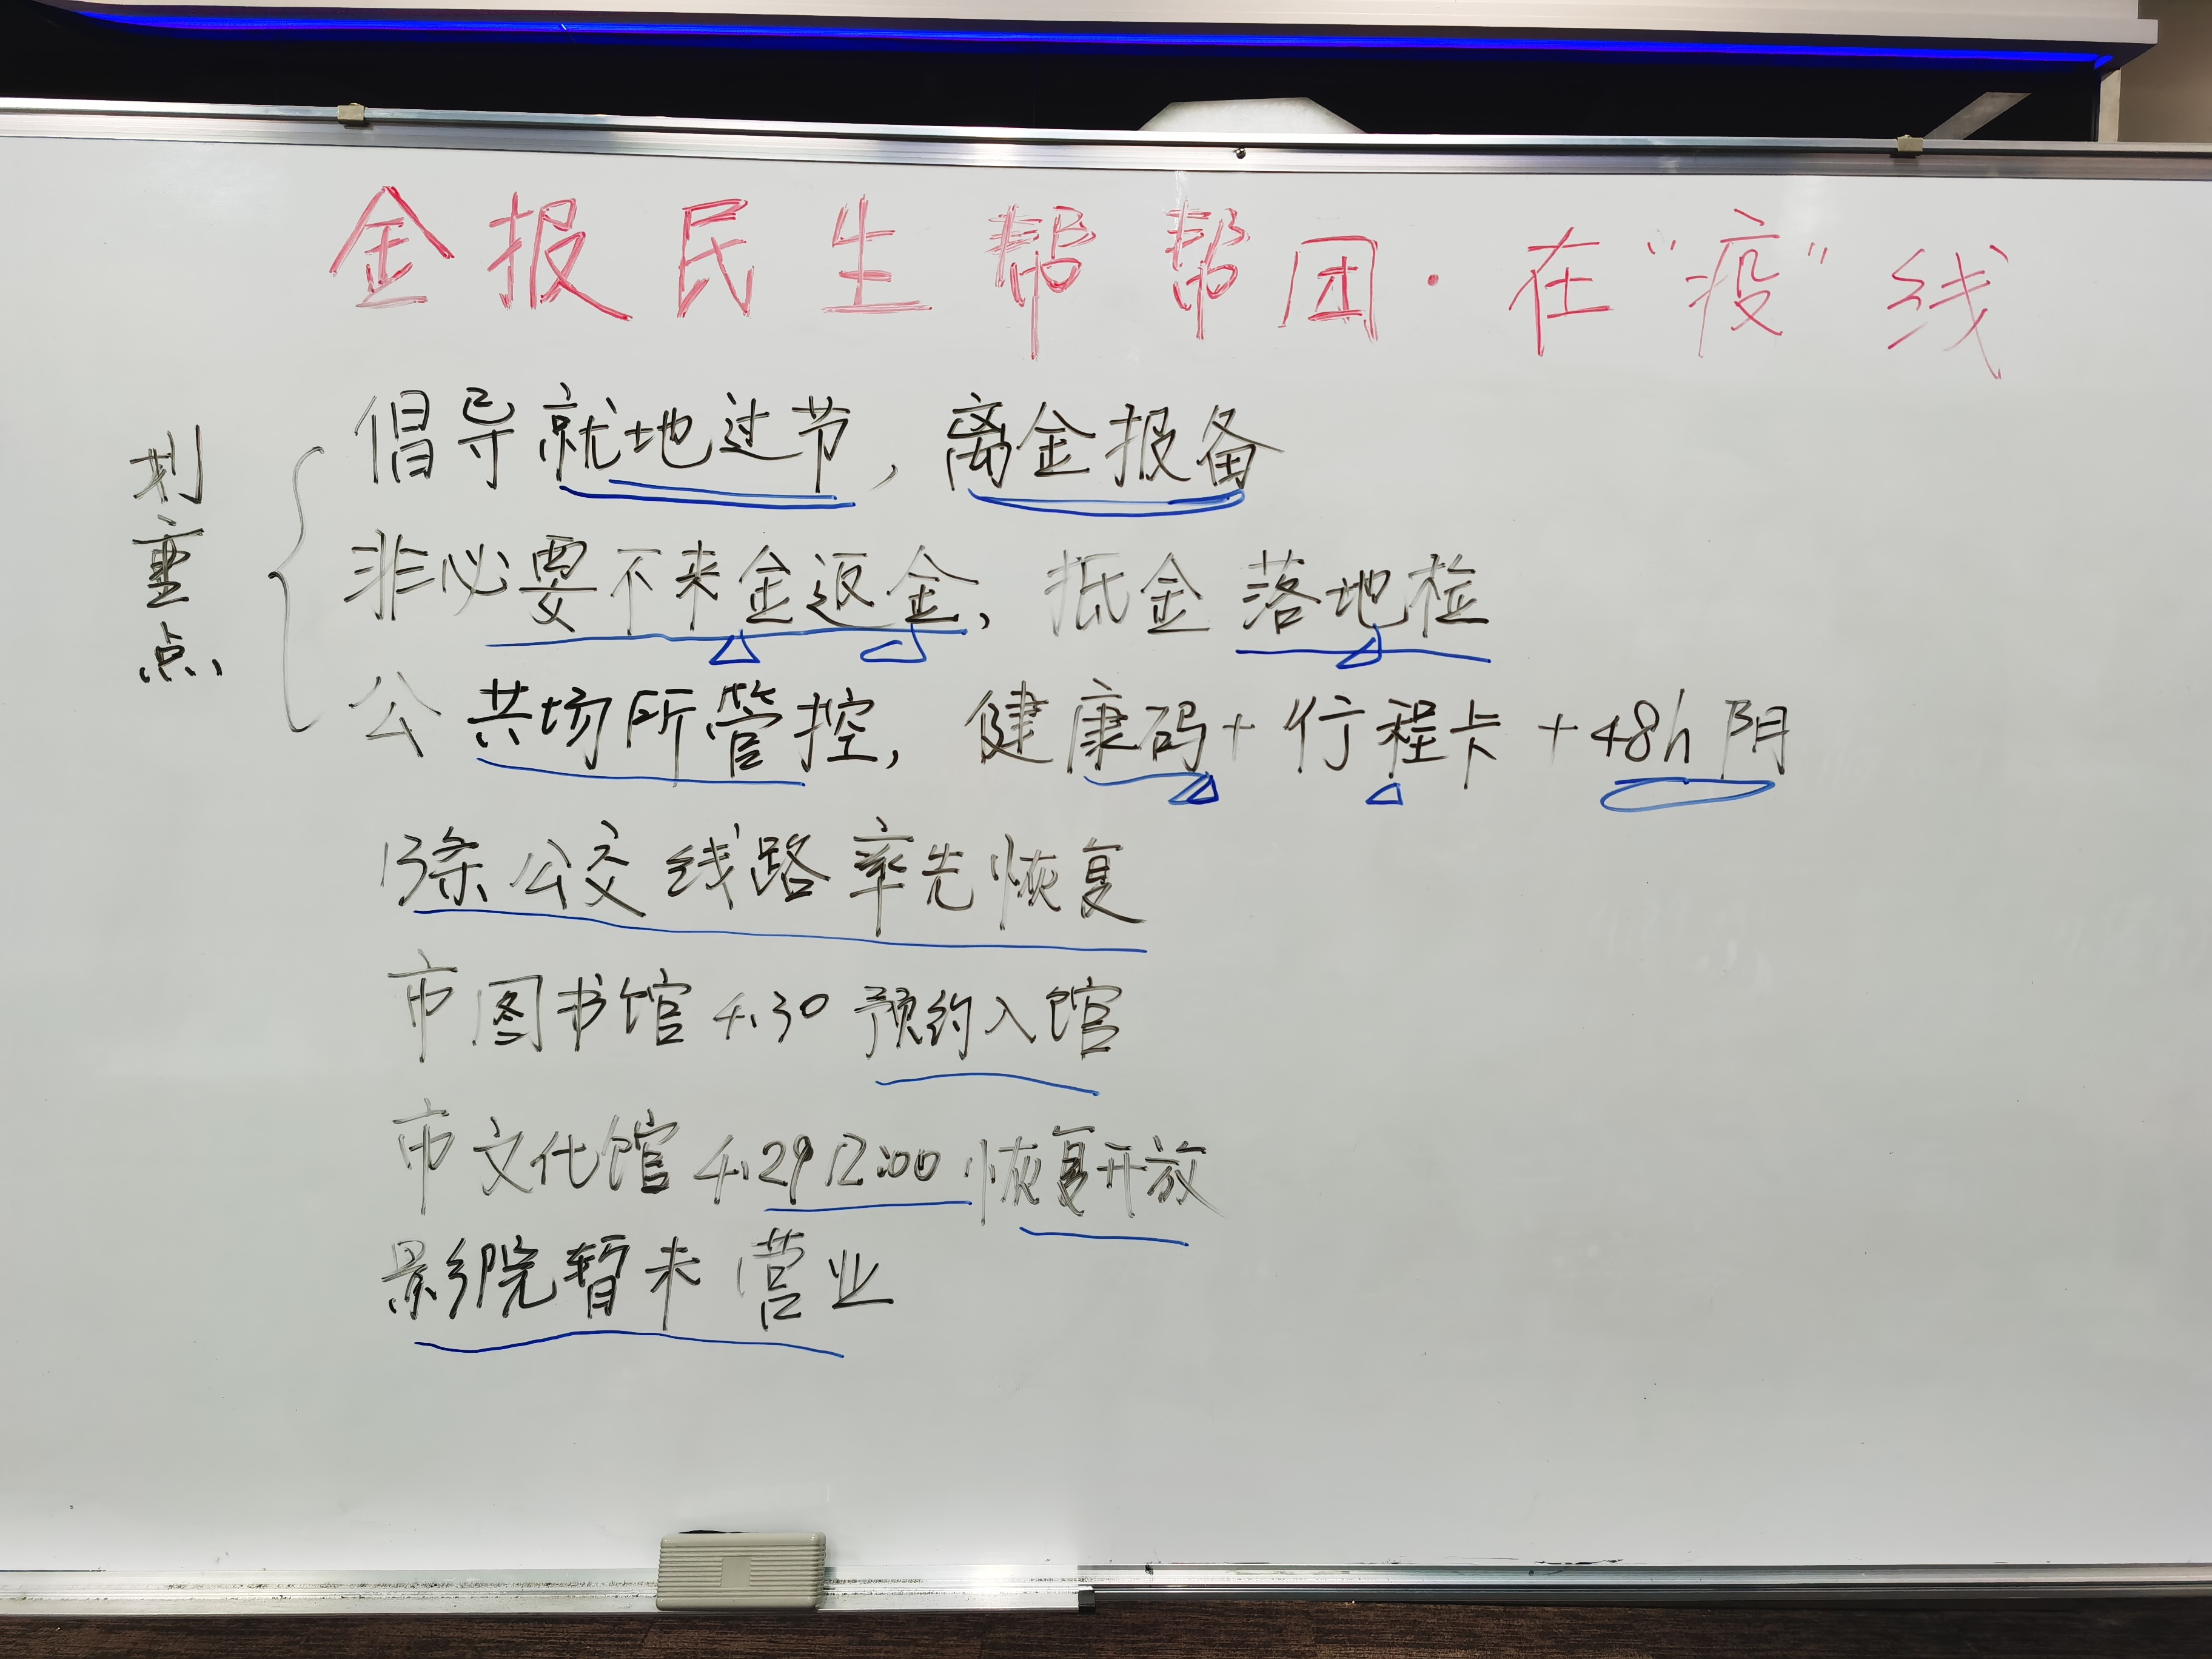 金报民生帮帮团·在“疫”线
划重点
倡导就地过节,离金报备
非必要不来金返金,抵金落地检
公共场所管控,健康码+行程卡+48h阴
13条公交线路率先恢复
市图书馆4.30预约入馆
市文化馆4.29 12:00恢复开放
影院暂未营业